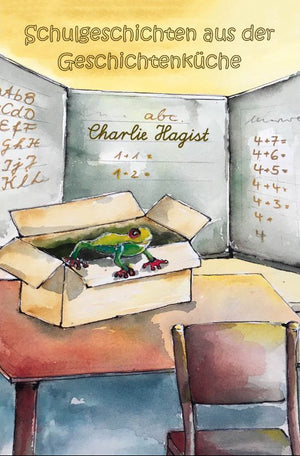 Schulgeschichten aus der
Geschichtenküche
abc
Charlie Hagist
1+1=
1+2=
AaBb
CcDd
EeFf
GgHh
IiJj
KkLl
4+7=
4+6=
4+5=
4+4=
4+3=
4
4